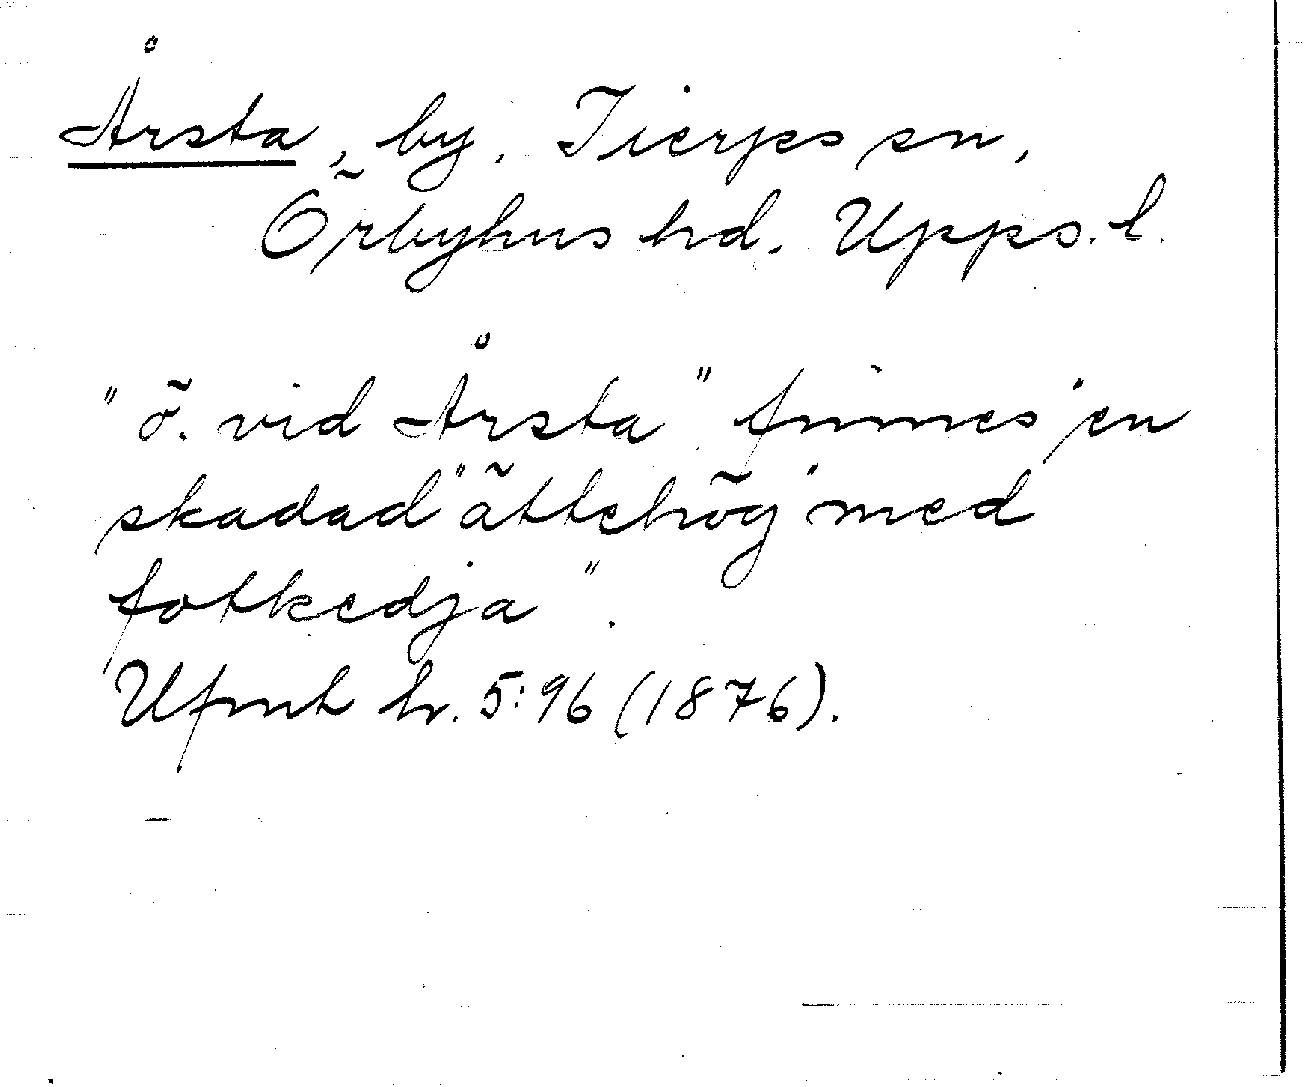 Årsta, by. Tierps sn,
Örbyhus hd. Upps. l.
"ö. vid Årsta" finnes "en
skadad "ättehög" med
fotkedja".
Ufmt h. 5:96 (1876).